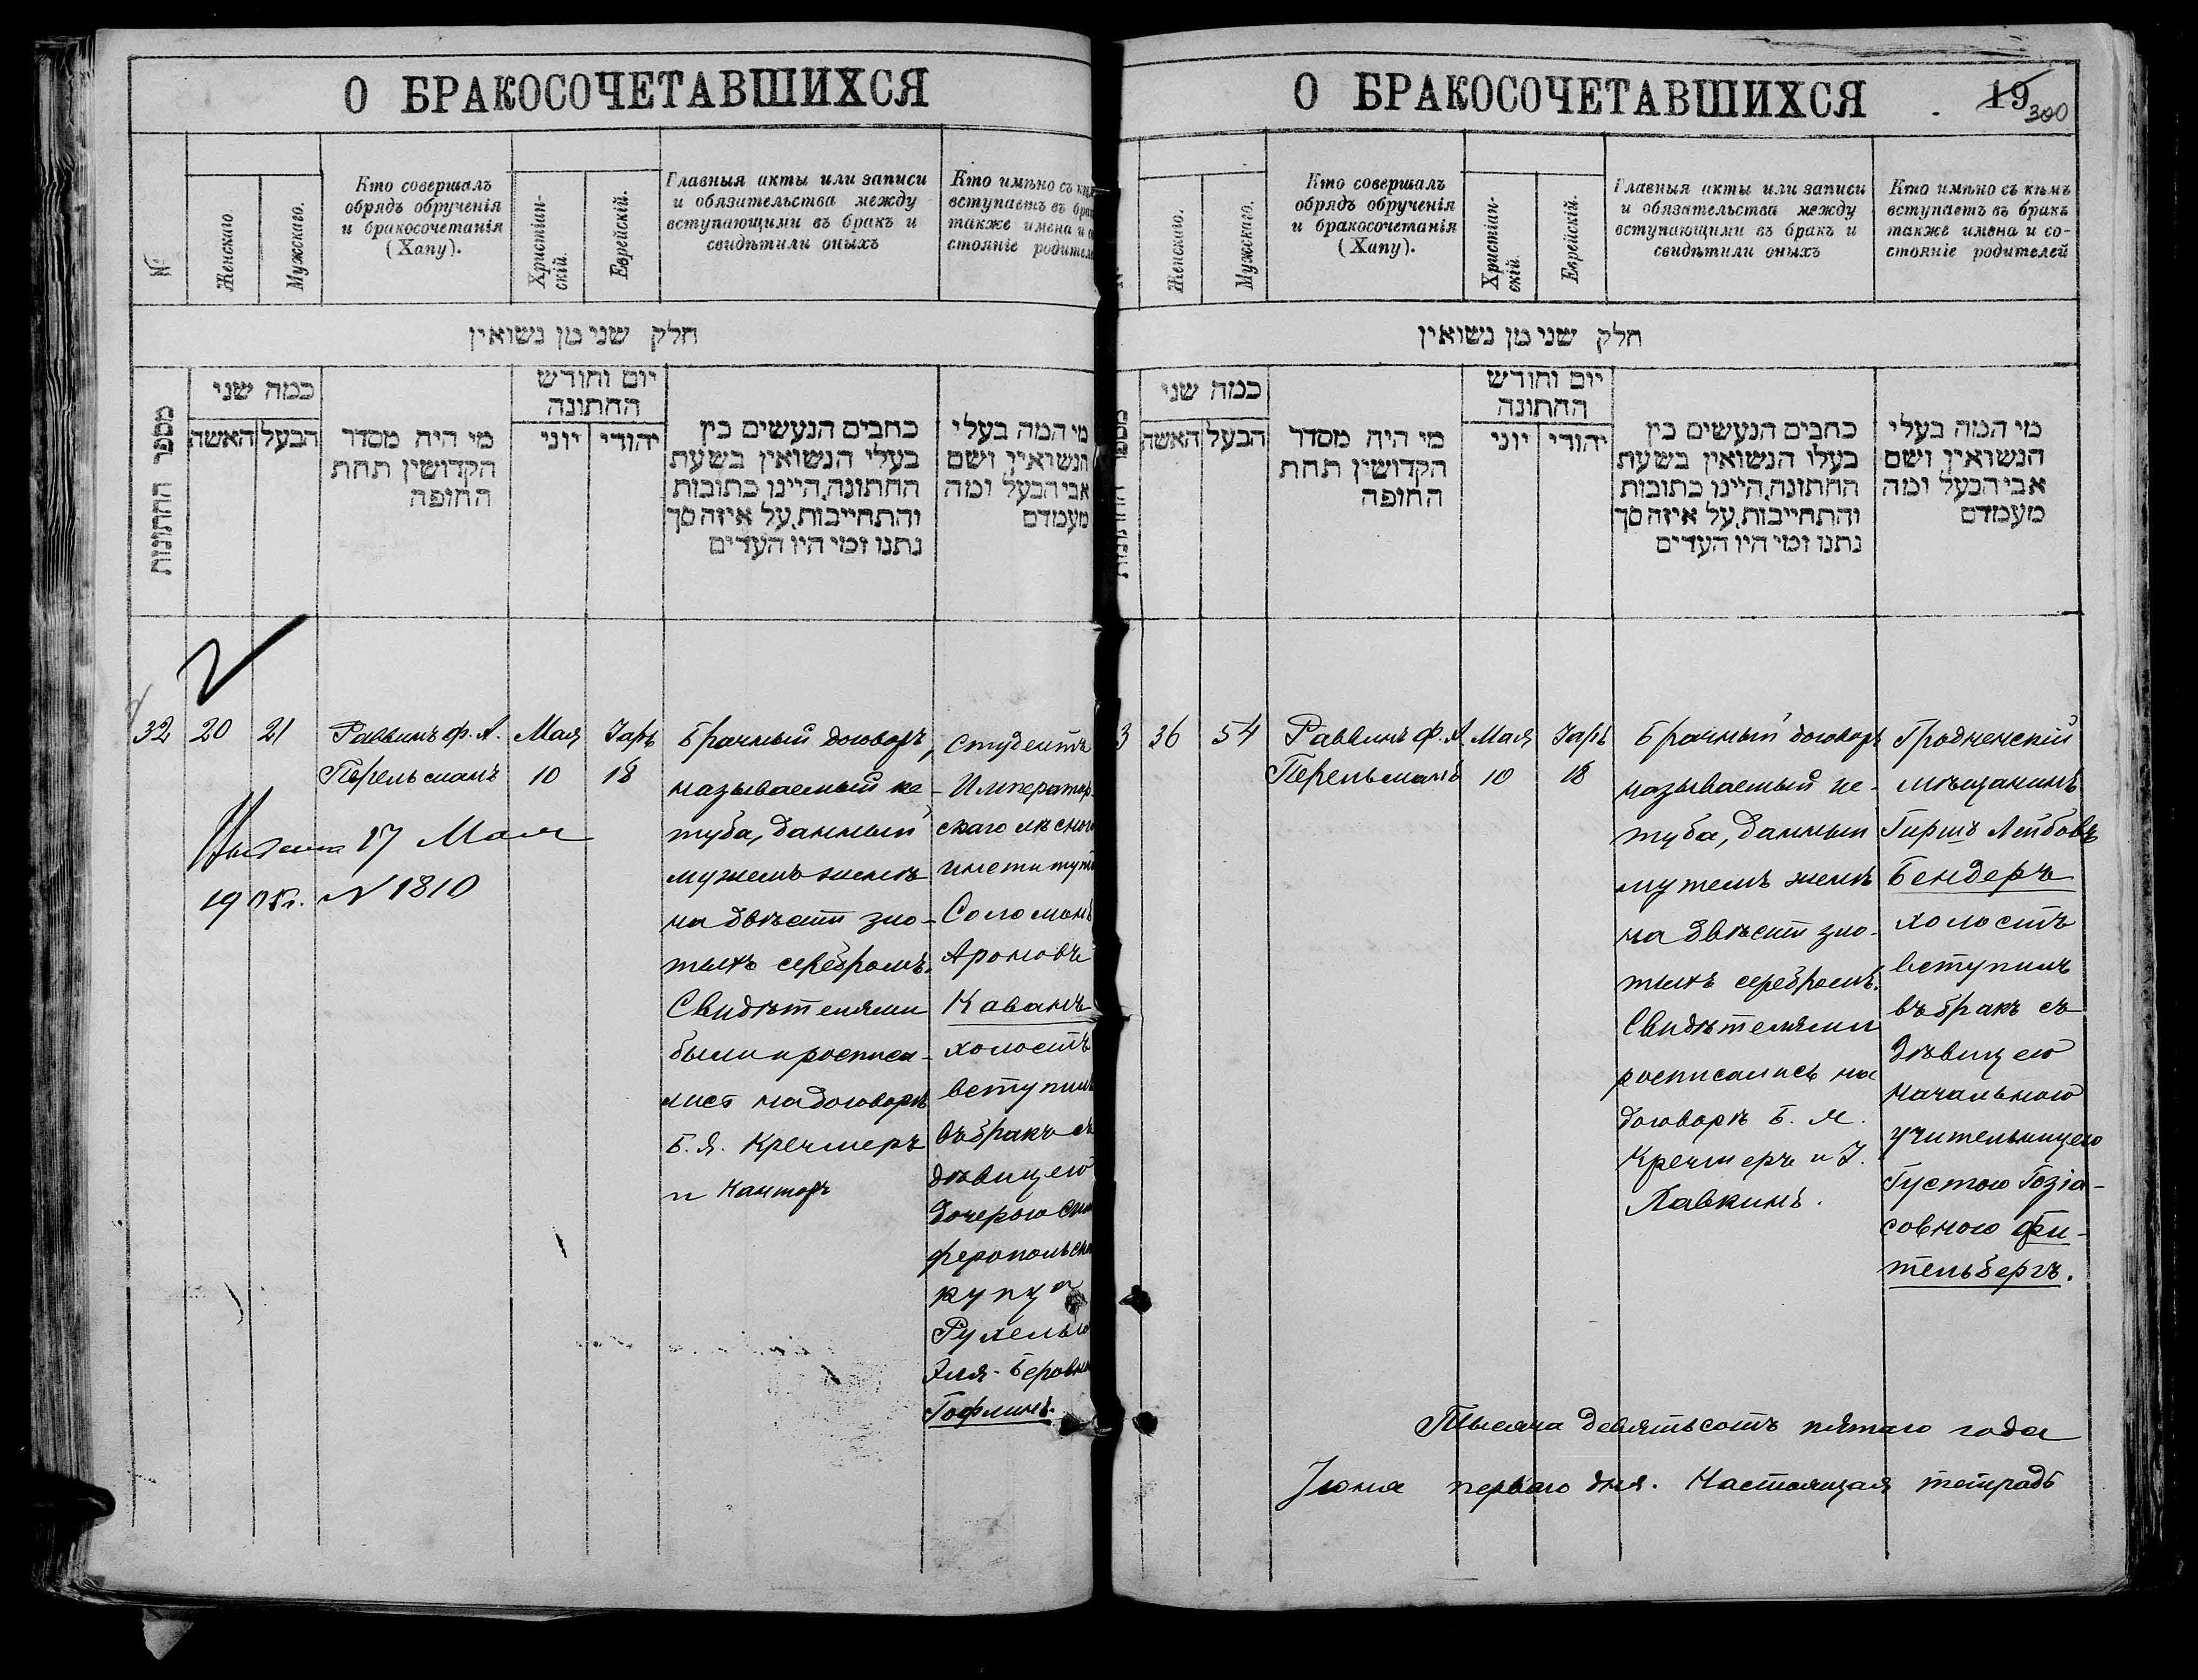 О БРАКОСОЧЕТАВШИХСЯ
№
Женскаго
Мужскаго.
Кто совершалъ
обрядъ обрученія
и бракосочетанія
(Хапу).
Христіан-
скій.
Еврейскій.
Главныя акты или записи
и обязательства между
вступающими въ бракъ и
свидѣтили оныхъ
Кто имѣно съ
вступаетъ въ
также имена и
стояніе
חלק שני מן נשואין
מספר החתונות
כמה שני
האשה
הבעל
מי היה מסדר
הקדושין תחת
החופה
יום וחודש
החתונה
יוני
יהודי
כתבים הנעשים בין
בעלי הנשואין בשעת
החתונה, היינו כתובות
והתחייבות, על איזה סך
נתנו ומי היו העדים
מי המה בעלי
הנשואין, ושם
אבי הבעל ומה
מעמדם
32
20
21
Раввинъ Ф. А.
Перельманъ
Мая
10
Іаръ
18
Брачный договоръ,
называемый ке-
туба, данный
мужемъ женѣ
на двѣсти зло-
тыхъ серебромъ.
Свидѣтелями
были и росписа-
лись на договорѣ
Б. Я. Кречмеръ
и Канторъ
Студентъ
Император-
скаго лѣсного
института
Соломонъ
Ароновъ
Каванъ
холостъ
вступилъ
въ бракъ съ
дѣвицею
дочерью Сим
феропольск
купца
Рухелью
Эля-Беровн
Гофлинъ.
17 Мая
№ 1810
О БРАКОСОЧЕТАВШИХСЯ
19
300
Женскаго.
Мужскаго.
Кто совершалъ
обрядъ обрученія
и бракосочетанія
(Хапу).
Христіан-
скій.
Еврейскій.
Главныя акты или записи
и обязательства между
вступающими въ бракъ и
свидѣтили оныхъ
Кто имѣно съ кѣмъ
вступаетъ въ бракъ
также имена и со-
стояніе родителей
חלק שני מן נשואין
כמה שני
האשה
הבעל
מי היה מסדר
הקדושין תחת
החופה
יום וחודש
החתונה
יוני
יהודי
כתבים הנעשים בין
בעלו הנשואין בשעת
החתונה, היינו כתובות
והתחייבות, על איזה סך
נתנו ומי היו העדים
מי המה בעלי
הנשואין, ושם
אבי הבעל ומה
מעמדם
3
36
54
Раввинъ Ф. А.
Перельманъ
Мая
10
Іаръ
18
Брачный договоръ
называемый ке-
туба, данный
мужемъ женѣ
на двѣсти зло-
тыхъ серебромъ.
Свидѣтелями
росписались на
договорѣ Б. Я.
Кречмеръ и І.
Лавкинъ.
Гродненскій
мѣщанинъ
Гиршъ Лейбовъ
Бендеръ
холостъ
вступилъ
въ бракъ съ
дѣвицею
начальною
учительницею
Густою Гозіа-
совною Фи-
тельбергъ.
Тысяча девятьсотъ пятаго года
Іюня перваго дня. Настоящая тетрадь